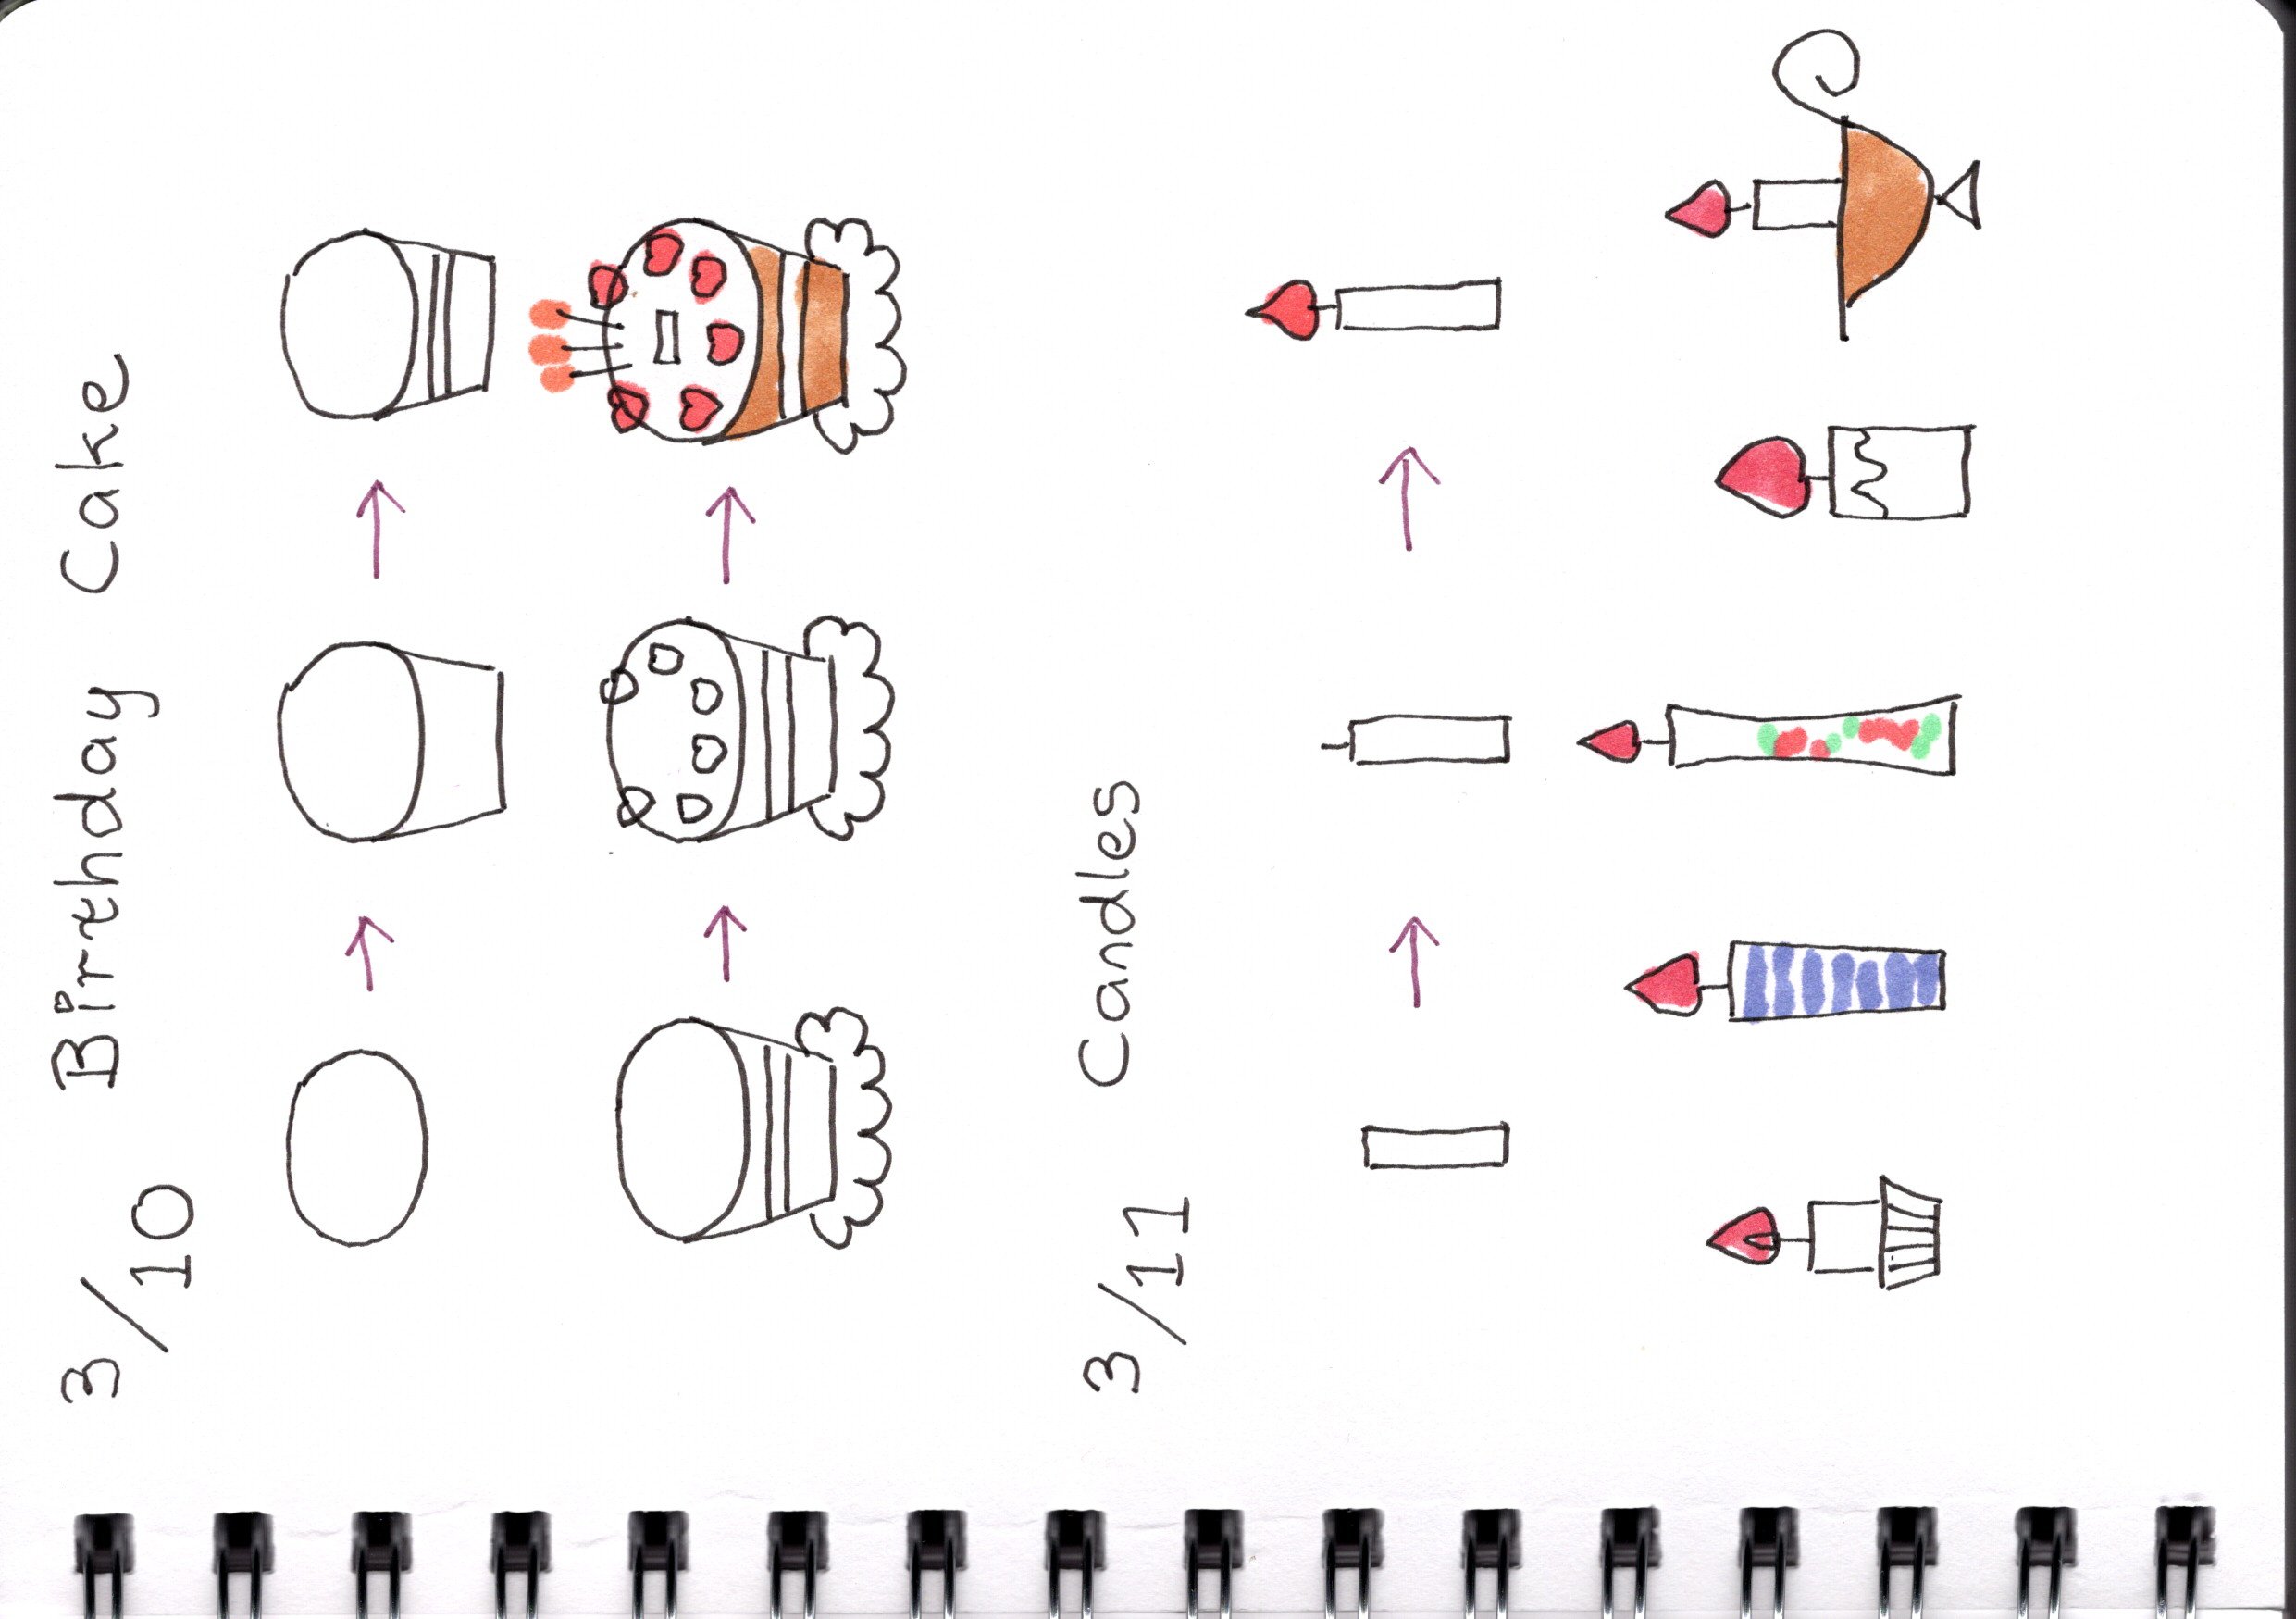 3/10 Birthday Cake
3/11 Candles